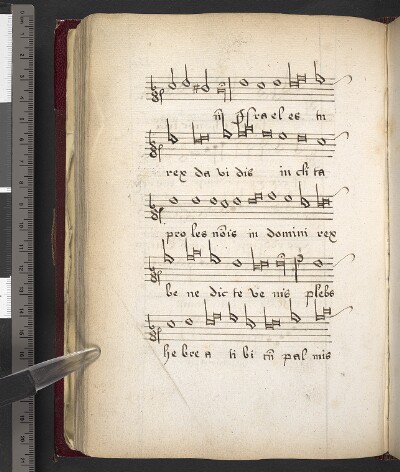 Israel es tu
rex da vi dis in cli ta
pro les nōīs in domini rex
be ne dic te ve nis plebs
he bre a ti bi cū pal mis